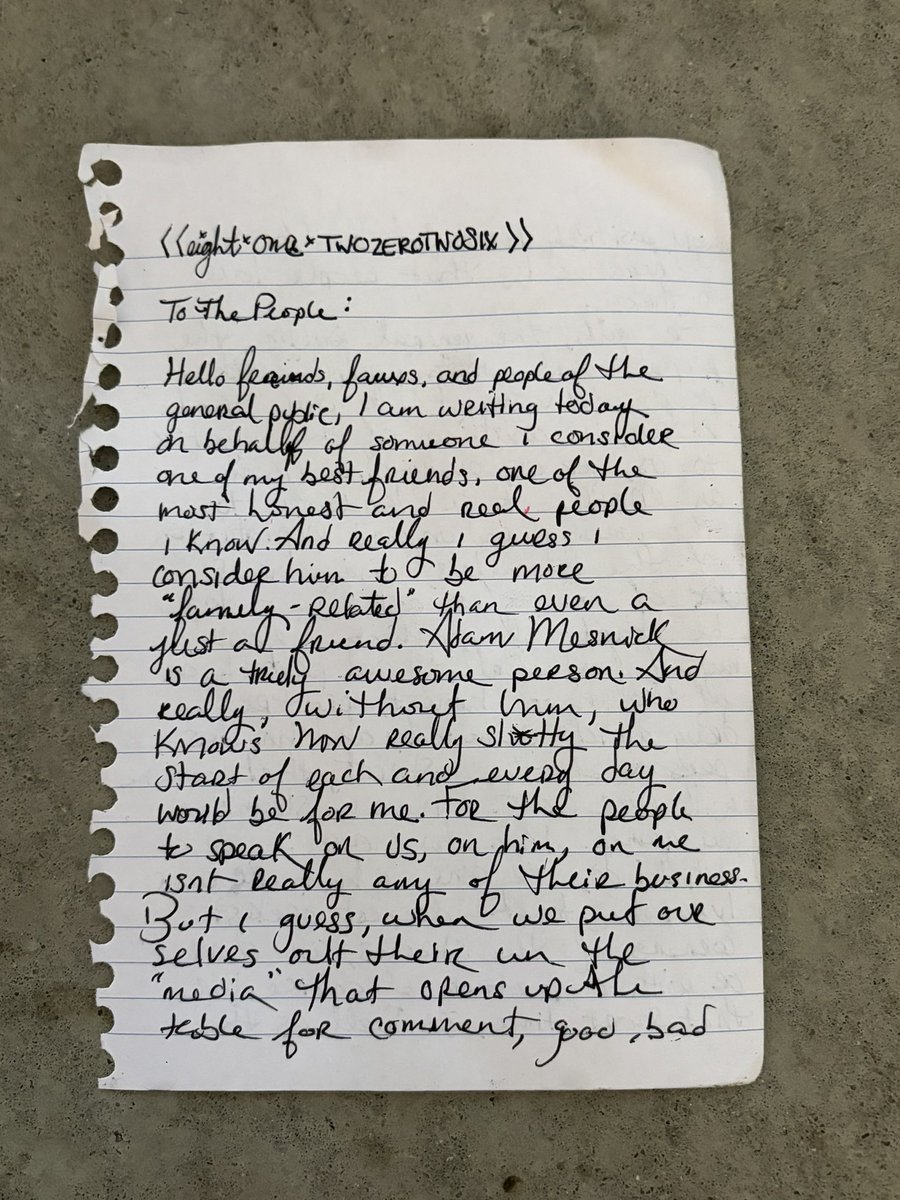 <<eight*one*TWOZEROTWOSIX>>
To The People:
Hello freinds, , and people of the
general public, I am writing today
on behalf of someone i consider
one of my best friends, one of the
most honest and real people
i know. And really i guess i
consider him to be more
"family-related" than even a
just a friend. Adam Mesnick
is a truly awesome person. And
really, without him, who
knows how really shitty the
start of each and every day
would be for me. For the people
to speak on us, on him, on me
isnt really any of their business.
But i guess, when we put our
selves out their in the
"media" that opens up the
table for comment, good, bad